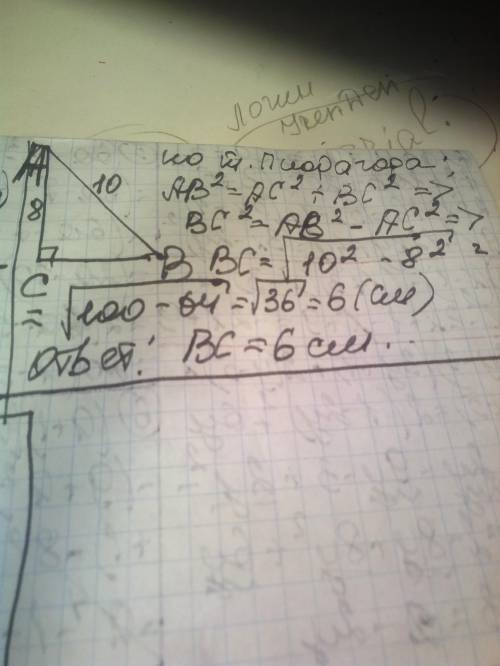 Логин
A
10
8
C
B
по т. Пифагора:
AB² = AC² + BC² =>
BC² = AB² - AC² =>
BC = √10² - 8² =
= √100 - 64 = √36 = 6 (см)
Ответ: BC = 6 см.